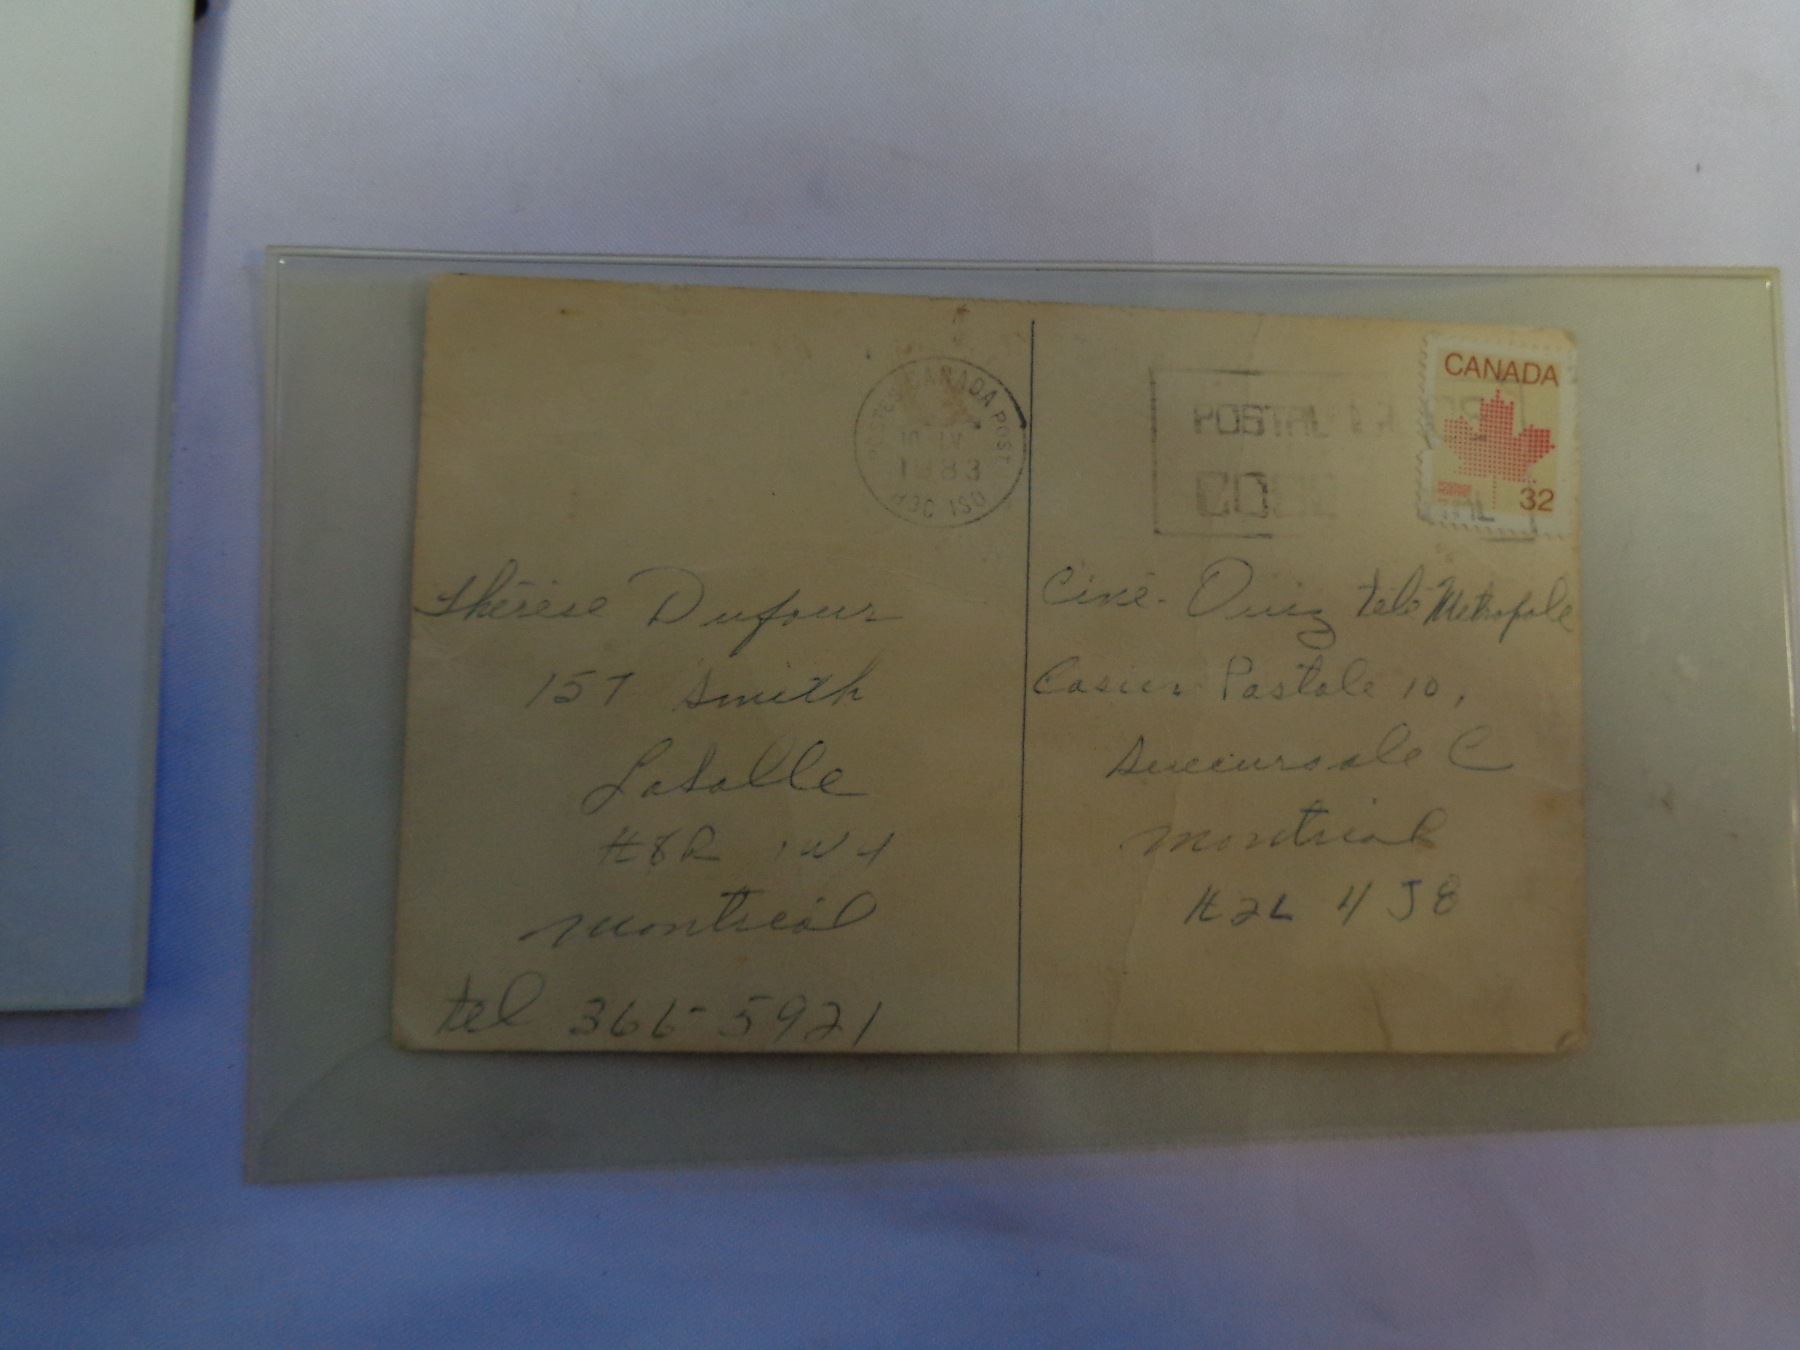 POSTES CANADA POST
10 IV
1983
H3C 1S0
POSTAL
CODE
CANADA
32
Thérèse Dufour
157 Smith
LaSalle
H8R 1W4
Montréal
tel 366-5921
Ciné-Quiz télé Metropole
Casier Postale 10,
Succursale C
Montréal
H2L 4J8